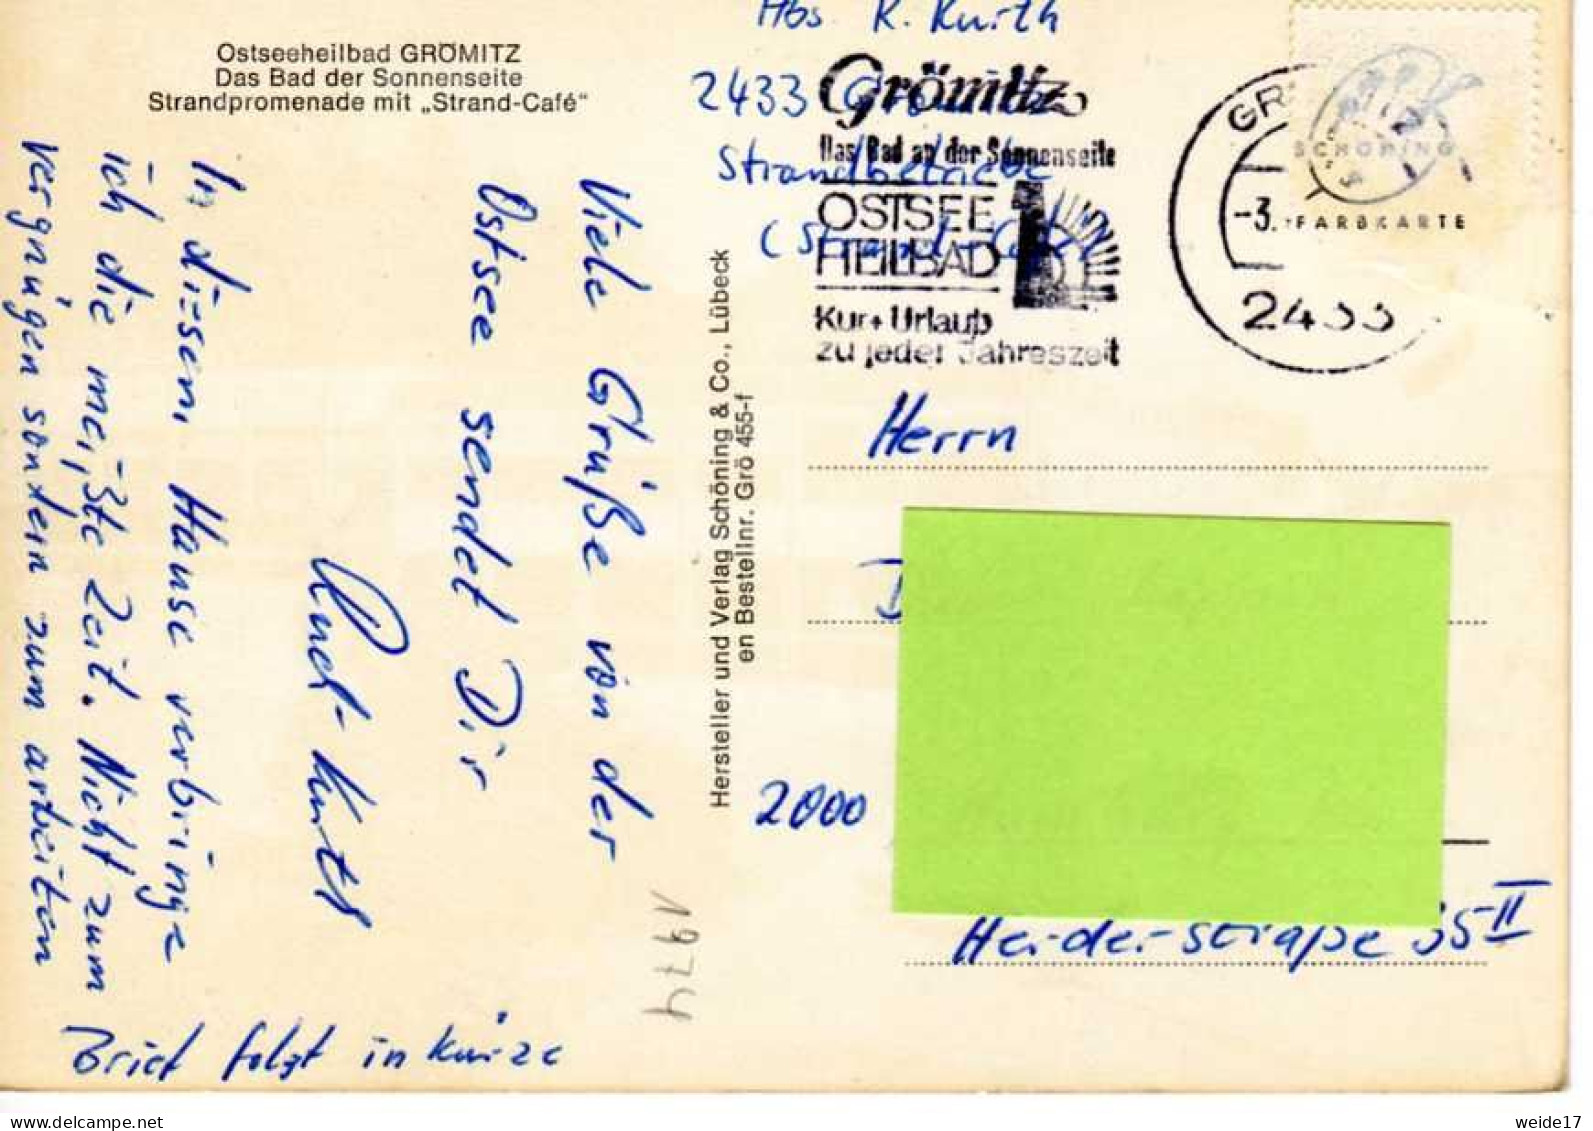 Ostseeheilbad GRÖMITZ
Das Bad der Sonnenseite
Strandpromenade mit „Strand-Café"
Viele Grüße von der
Ostsee sendet Dir
Kurth
In diesem Hause verbringe
ich die meißte Zeit. Nicht zum
vergnügen sondern zum arbeiten
Brief folgt in kürze
1974
Hersteller und Verlag Schöning & Co., Lübeck
en Bestellnr. Grö 455-f
Abs K. Kurth
2433 Grömitz
Strandbetriebe
(Strand-Café)
Grömitz
Das Bad an der Sonnenseite
OSTSEE
HEILBAD
Kur + Urlaub
zu jeder Jahreszeit
GR
-3.
2433
SCHÖNING
FARBKARTE
Herrn
D
2000
Herderstraße 35 II
weide17